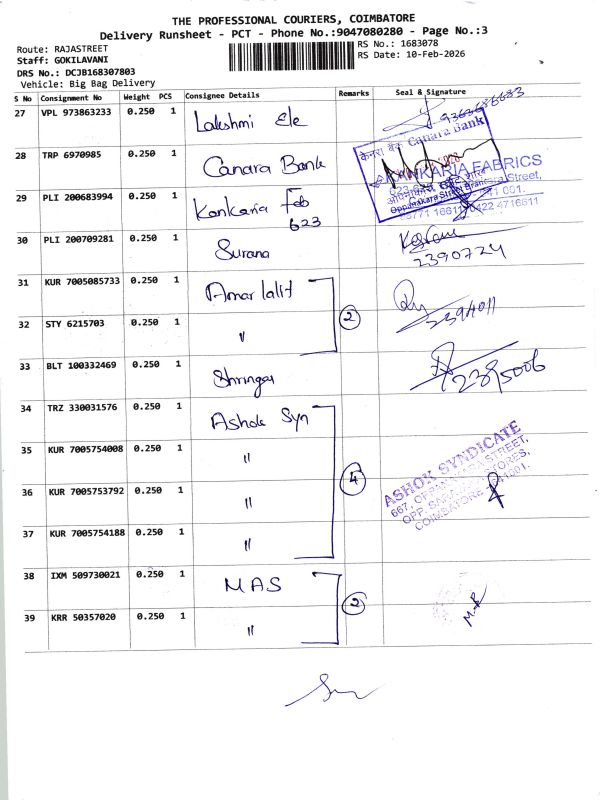 THE PROFESSIONAL COURIERS, COIMBATORE
Delivery Runsheet - PCT - Phone No.:9047080280 - Page No.:3
Route: RAJASTREET
RS No.: 1683078
Staff: GOKILAVANI
RS Date: 10-Feb-2026
DRS No.: DCJB168307803
Vehicle: Big Bag Delivery
S No Consignment No Weight PCS Consignee Details Remarks Seal & Signature
27 VPL 973863233 0.250 1 Lakshmi Ele
28 TRP 6970985 0.250 1 Canara Bank
केनरा बैंक Canara Bank
KANKARIA FABRICS
Oppanakara Street Branch
29 PLI 200683994 0.250 1 Kankaria Fab
623
30 PLI 200709281 0.250 1 Surana
2390724
31 KUR 7005085733 0.250 1 Amar lalit
32 STY 6215703 0.250 1 〃 2 2394011
33 BLT 100332469 0.250 1 Shringar 2395006
34 TRZ 330031576 0.250 1 Ashok Syn
35 KUR 7005754008 0.250 1 〃
4
ASHOK SYNDICATE
36 KUR 7005753792 0.250 1 〃
37 KUR 7005754188 0.250 1 〃
38 IXM 509730021 0.250 1 MAS
2
39 KRR 50357020 0.250 1 〃